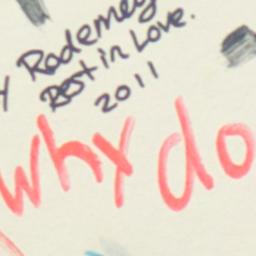 Rademey
Best in Love.
2011
why do